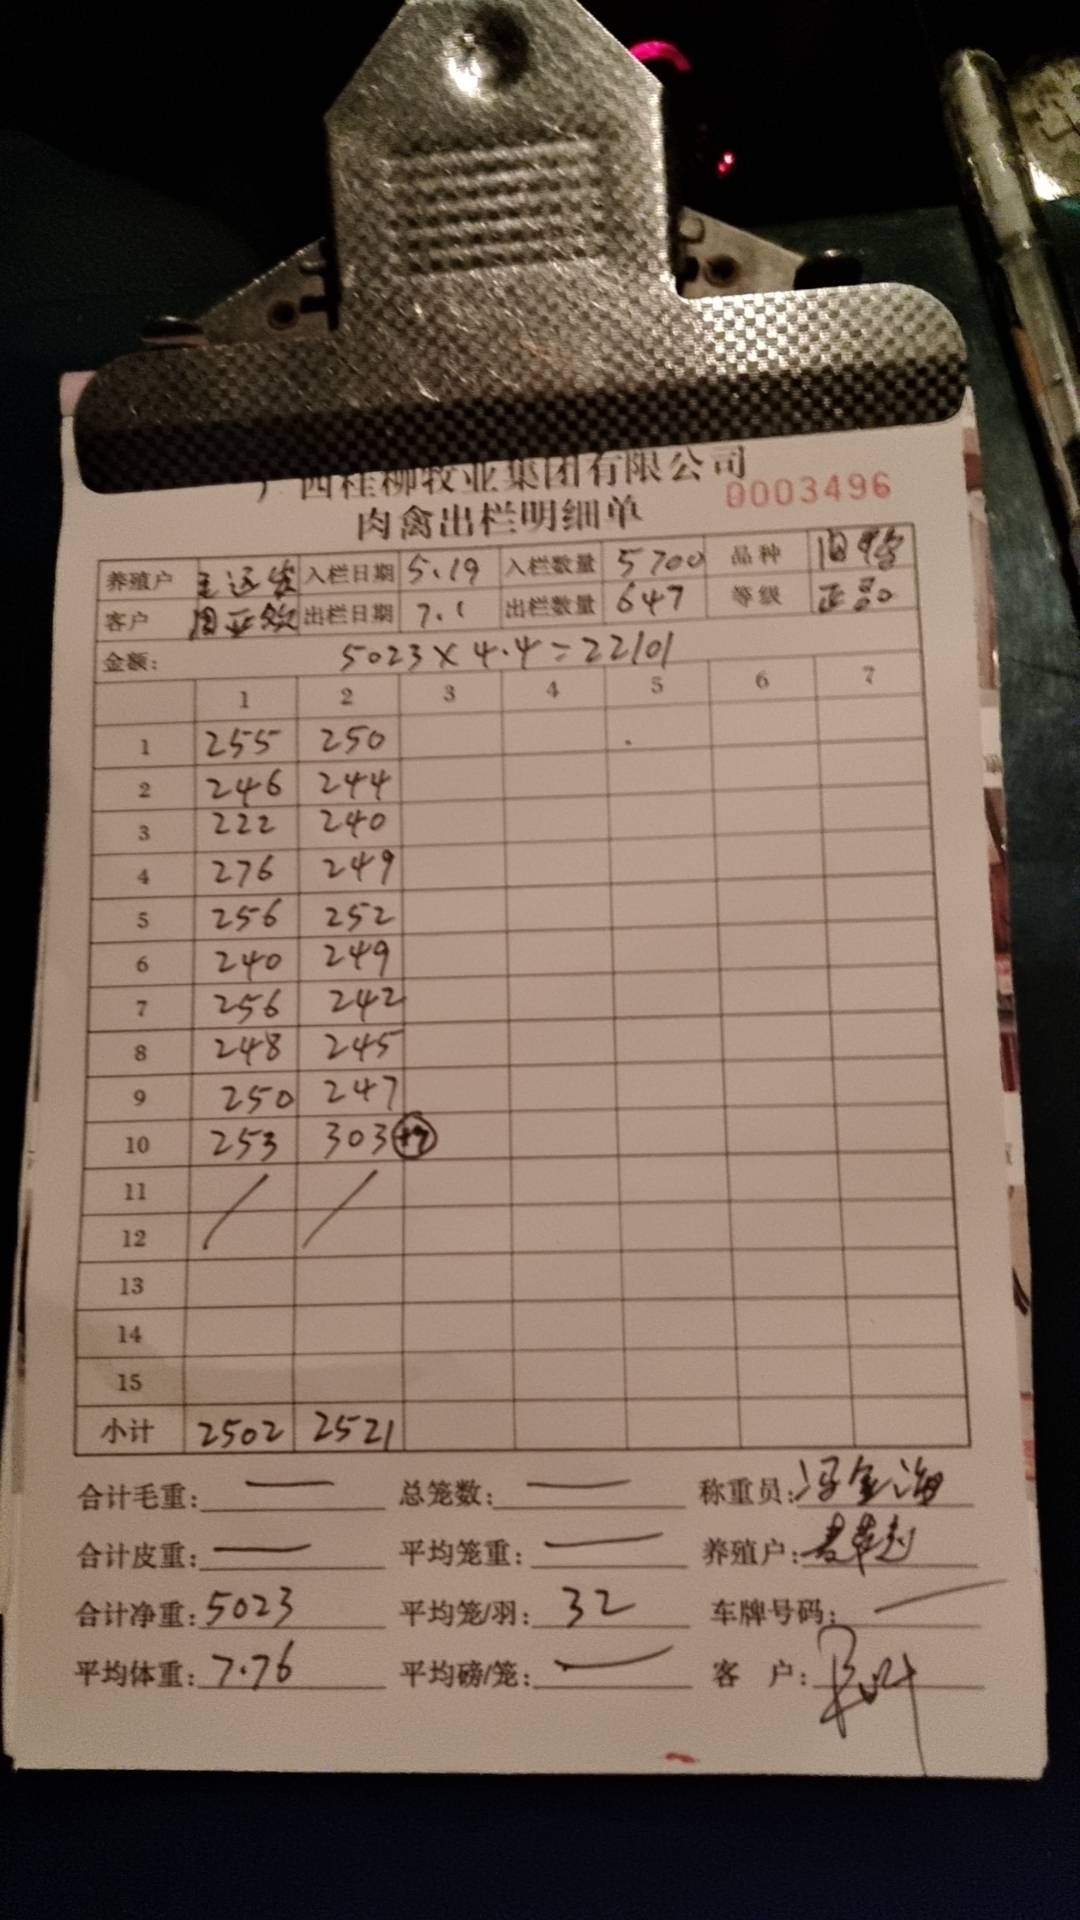 广西桂柳牧业集团有限公司
肉禽出栏明细单 0003496
养殖户 入栏日期 5.19 入栏数量 5700 品种
客户 周亚 出栏日期 7.1 出栏数量 647 等级 正品
金额: 5023×4.4=22101
1 2 3 4 5 6 7
1 255 250
2 246 244
3 222 240
4 276 249
5 256 252
6 240 249
7 256 242
8 248 245
9 250 247
10 253 303 +7
11
12
13
14
15
小计 2502 2521
合计毛重: — 总笼数: — 称重员: 冯金海
合计皮重: — 平均笼重: — 养殖户:
合计净重: 5023 平均笼/羽: 32 车牌号码: —
平均体重: 7.76 平均磅/笼: — 客 户: